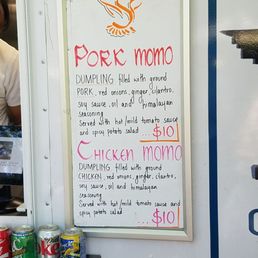 PORK MOMO
DUMPLING filled with ground
PORK, red onions, ginger, cilantro,
soy sauce, oil and himalayan
seasoning
Served with hot/mild tomato sauce
and spicy potato salad ...$10
CHICKEN MOMO
DUMPLING filled with ground
CHICKEN, red onions, ginger, cilantro,
soy sauce, oil and himalayan
seasoning
Served with hot/mild tomato sauce and
spicy potato salad ...$10